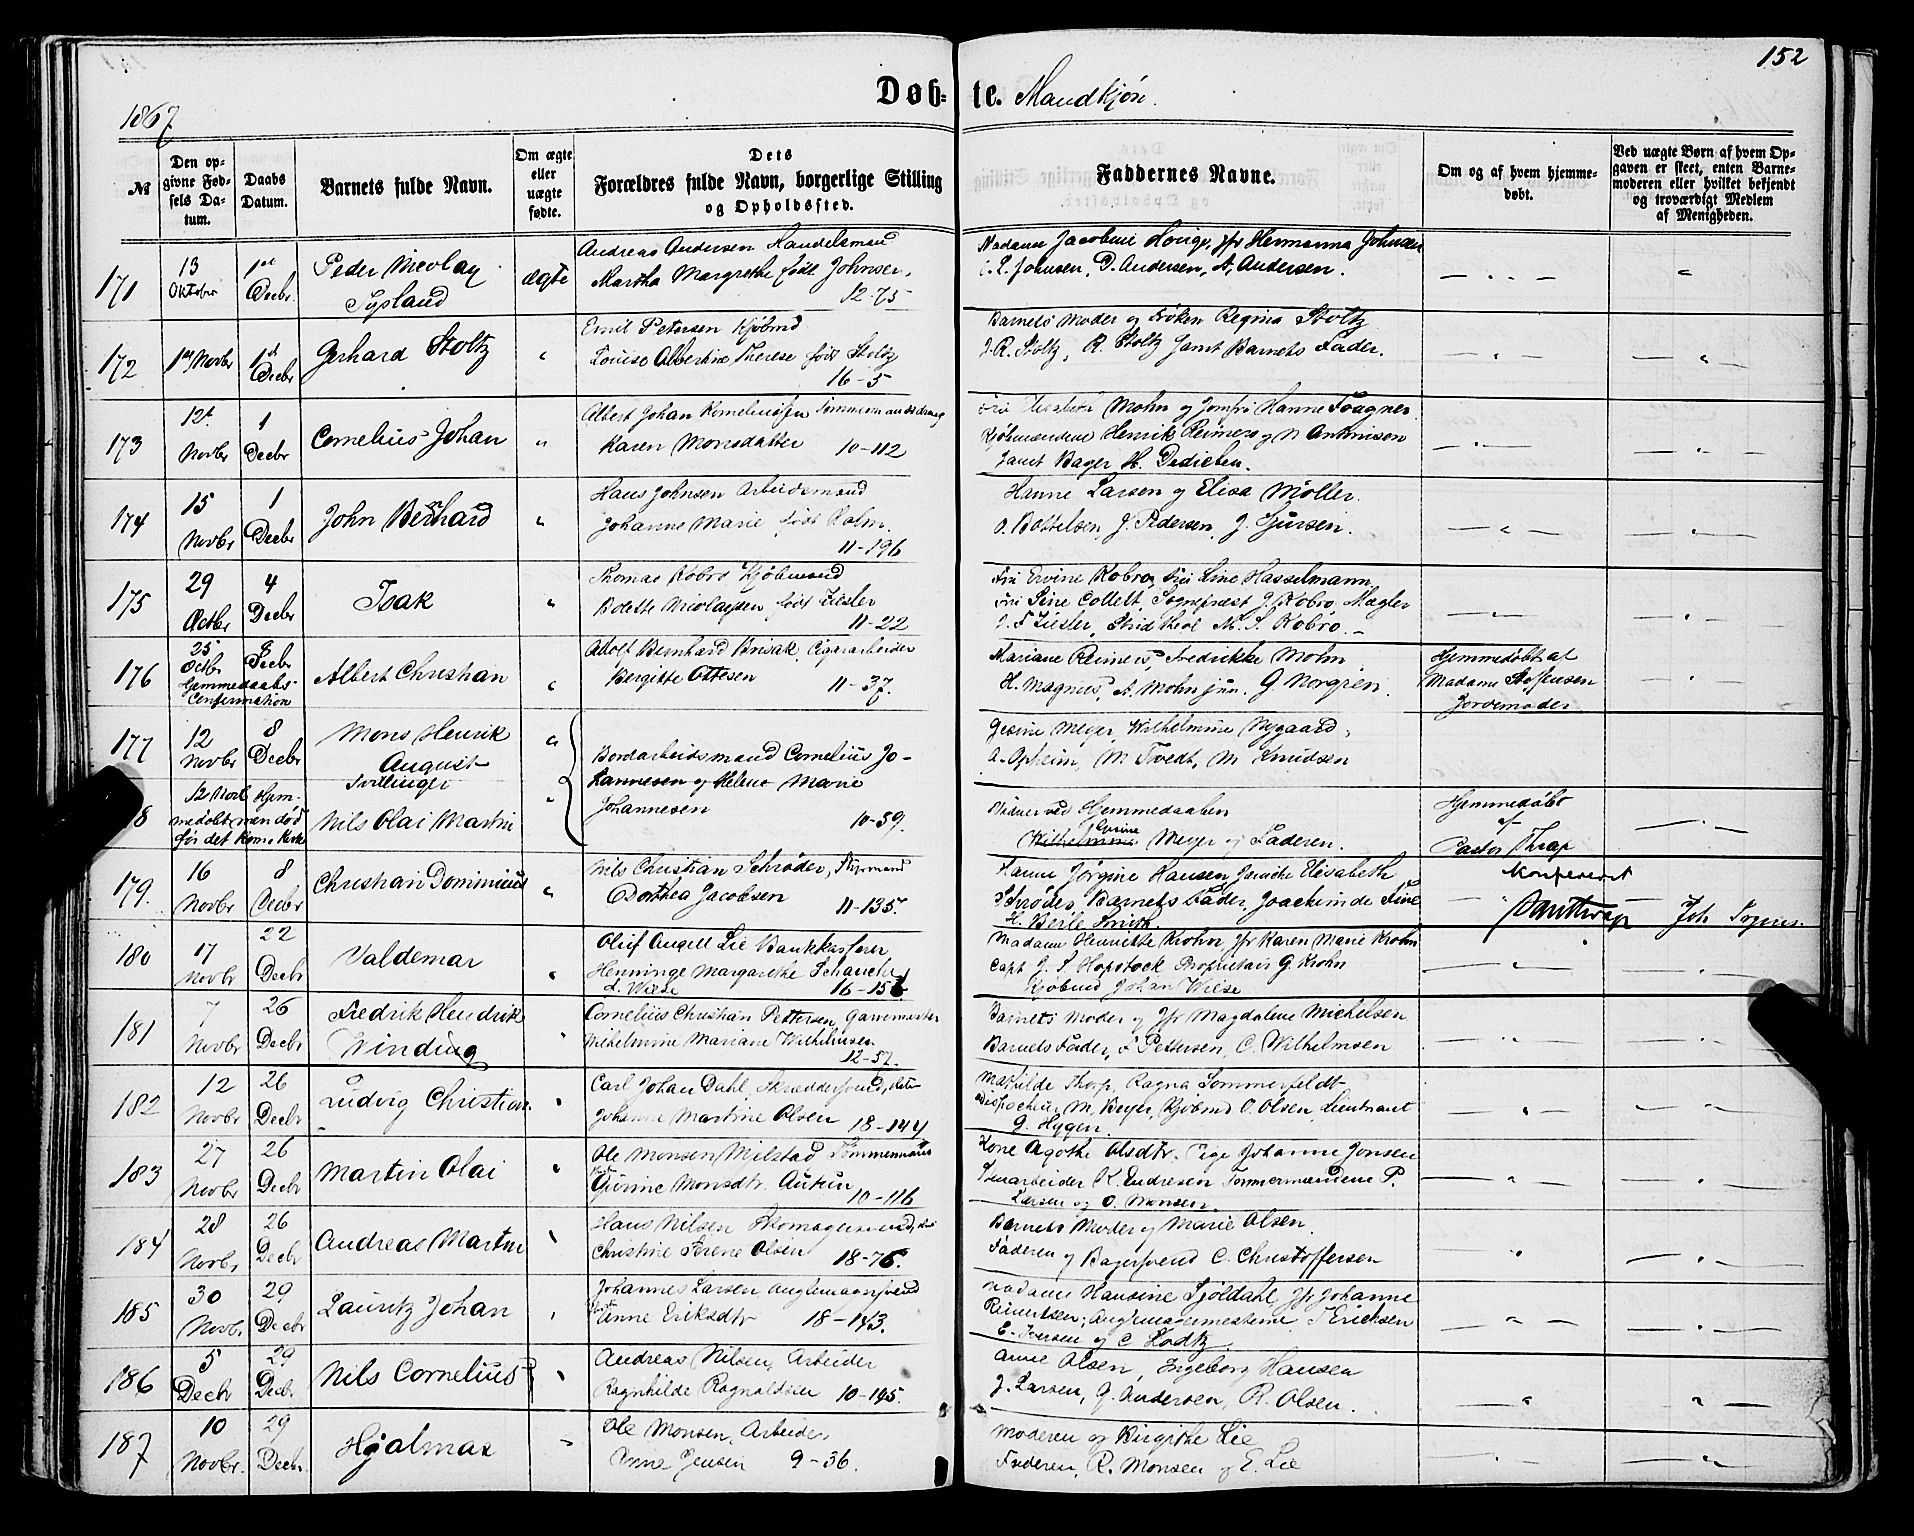 152
Døb- te. Mandkjøn.
1867
№
Den op-
givne Fød-
sels Da-
tum.
Daabs
Datum.
Barnets fulde Navn.
Om ægte
eller
uægte
fødte.
Dets
Forældres fulde Navn, borgerlige Stilling
og Opholdssted.
Faddernes Navne.
Om og af hvem hjemme-
døbt.
Ved uægte Børn af hvem Op-
gaven er skeet, enten Barne-
moderen eller hvilket bekjendt
og troværdigt Medlem
af Menigheden.
171
13
Oktober
1st
Decbr.
Peder Nicolay
Sysland
ægte
Andreas Andersen Handelsmand
Martha Margrethe født Johnsen,
12-75
Madame Jacobine Houge, Jfr Hermanna Johnsen
L. Johnsen, D. Andersen, A. Andersen.
172
1st Novbr
1st
Decbr
Gerhard Stoltz
Emil Petersen Kjøbmd
Louise Albertine Therese født Stoltz
16-5
Barnets Moder og Frøken Regina Stoltz
J. R. Stoltz, R. Stoltz samt Barnets Fader.
173
12t
Novbr
1
Decbr
Cornelius Johan
Albert Johan Korneliussen Tømmermandsdreng
Karen Monsdatter 10-112
Elisabeth Mohn og Jomfru Hanne Fougner
Kjøbmændene Henrik Reimers og N Antonisen
samt Bager H. Dedichen.
174
15
Novbr
1
Decbr
John Bernhard
Hans Johnsen Arbeidsmand
Johanne Marie født Holm.
11-196
Hanne Larsen og Elisa Møller.
O. Bottelsen, J. Pedersen, J. Sjursen.
175
29
Octbr
4
Decbr
Isak
Thomas Kobro Kjøbmand
Bolette Nicolaysen født Ziesler
11-22
Fru Ervine Kobro, Fru Line Hasselmann,
Fru Sine Collett, Sognepræst J. Kobro, Mægler
J. F. Ziesler, Stud theol M. S. Kobro.
176
25
Octbr
Hjemmedaabs-
Confirmation
8
Decbr
Albert Christian
Adolf Bernhard Brisak, Cigararbeider
Bergitte Ottesen 11-37.
Mariane Reimers, Fredrikke Mohn
H. Magnus, A. Mohn jun. G Norgren.
Hjemmedøbt af
Madame Steffensen
Jordemoder
177
12
Novbr
8
Decbr
Mons Henrik
August
Tvillinger
Bordarbeidsmand Cornelius Jo-
hannesen og Helene Marie
Johannesen
10-59.
Gesine Meyer, Wilhelmine Nygaard,
A. Opheim, M Tvedt, M Knudsen
8
12 Novb Hjem-
medøbt men død
før det kom i Kirke
Nils Olai Martin
Vidner ved Hjemmedaaben
Gesine
Wilhelmine Meyer og Faderen.
Hjemmedøbt
af
Pastor Thrap
179.
16
Novbr
8
Decbr
Christian Dominicus
Nils Christian Schrøder, Styrmand
Dorthea Jacobsen 11-135.
Hanne Jørgine Hansen, Janiche Elisabeth
Schrøder, Barnets Fader, Joachim de Fine
H. Beile Smith.
Konfereret
180
17
Novbr
22
Decbr
Valdemar
Oluf Angell Lie Bankkasserer
Henninge Margarethe Schancke
f. Wiese 16-156
Madame Henriette Krohn, Jfr Karen Marie Krohn
Capt J. S. Hopstock Proprietair G. Krohn
Kjøbmd Johan Wiese
181
7
Novbr
26
Decbr
Fredrik Hendrik
Winding
Cornelius Christian Pettersen, Garvemester
Wilhelmine Mariane Wilhelmsen
12-57.
Barnets Moder og Jfr Magdalene Michelsen
Barnets Fader, F Pettersen, C. Wilhelmsen
182
12
Novbr
26
Decbr
Ludvig Christian
Carl Johan Dahl, Skræddersvend,
Johanne Martine Olsen 18-144
Mathilde Thorp, Ragna Sommerfeldt
Dispacheur M. Beyer, Kjøbmd O. Olsen, Lieutnant
G. Hygen.
183
27
Novbr
26
Decbr
Martin Olai
Ole Monsen Milstad Tømmermand
Gurine Monsdtr. Autun
10-116
Kone Agothe Olsdtr. Pige Johanne Jonsen
K. Endresen Tømmermændene P.
Larsen og O. Monsen.
184
28
Novbr
26
Decbr
Andreas Martin
Hans Nilsen Skomagersvend,
Christine Serene Olsen 18-76.
Barnets Moder og Marie Olsen
Faderen og Bagersvend C. Christoffersen
185
30
Novbr
29
Decbr
Lauritz Johan
Johannes Larsen
Anne Eriksdtr 18-143.
Madame Hansine Sjöldahl, Jfr Johanne
Reinertsen; T Ericksen
E. Iversen og C Lodtz.
186
5
Decbr
29
Decbr
Nils Cornelius
Andreas Nilsen, Arbeider
Ragnhilde Ragnaldsen 10-145.
Anne Olsen, Ingeborg Hansen
J. Larsen, G. Andersen, R. Olsen.
187
10
Novbr.
29
Decbr.
Hjalmar
Ole Monsen, Arbeider,
Anna Jensen 9-36.
Moderen og Birgithe Lie
Faderen, R. Monsen og E. Lie